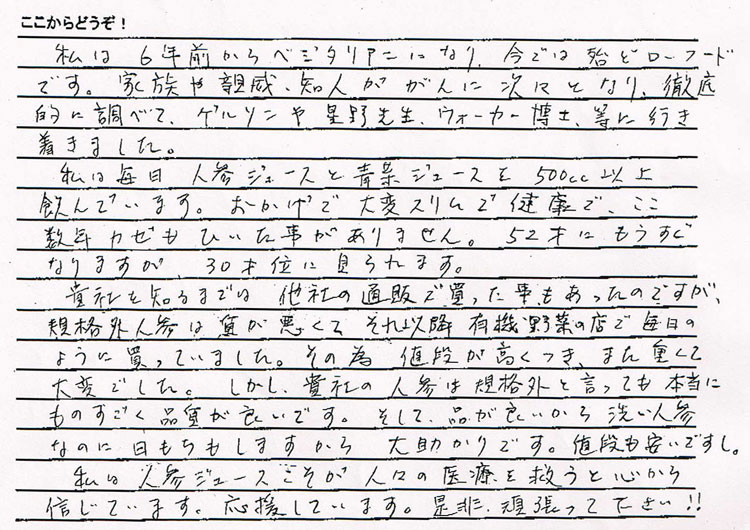 ここからどうぞ！
私は6年前からベジタリアンになり、今では殆どローフード
です。家族や親戚、知人ががんに次々となり、徹底
的に調べて、ゲルソンや星野先生、ウォーカー博士、等に行き
着きました。
私は毎日 人参ジュースと青菜ジュースを500cc以上
飲んでいます。おかげで大変スリムで健康で、ここ
数年カゼもひいた事がありません。52才にもうすぐ
なりますが 30才位に見られます。
貴社を知るまでは 他社の通販で買った事もあったのですが、
規格外人参は質が悪くて それ以降 有機野菜の店で毎日の
ように買っていました。その為 値段が高くつき、また重くて
大変でした。しかし、貴社の人参は規格外と言っても本当に
ものすごく品質が良いです。そして、品が良いから洗い人参
なのに日もちもしますから 大助かりです。値段も安いですし。
私は人参ジュースこそが人々の医療を救うと心から
信じています。応援しています。是非、頑張って下さい!!